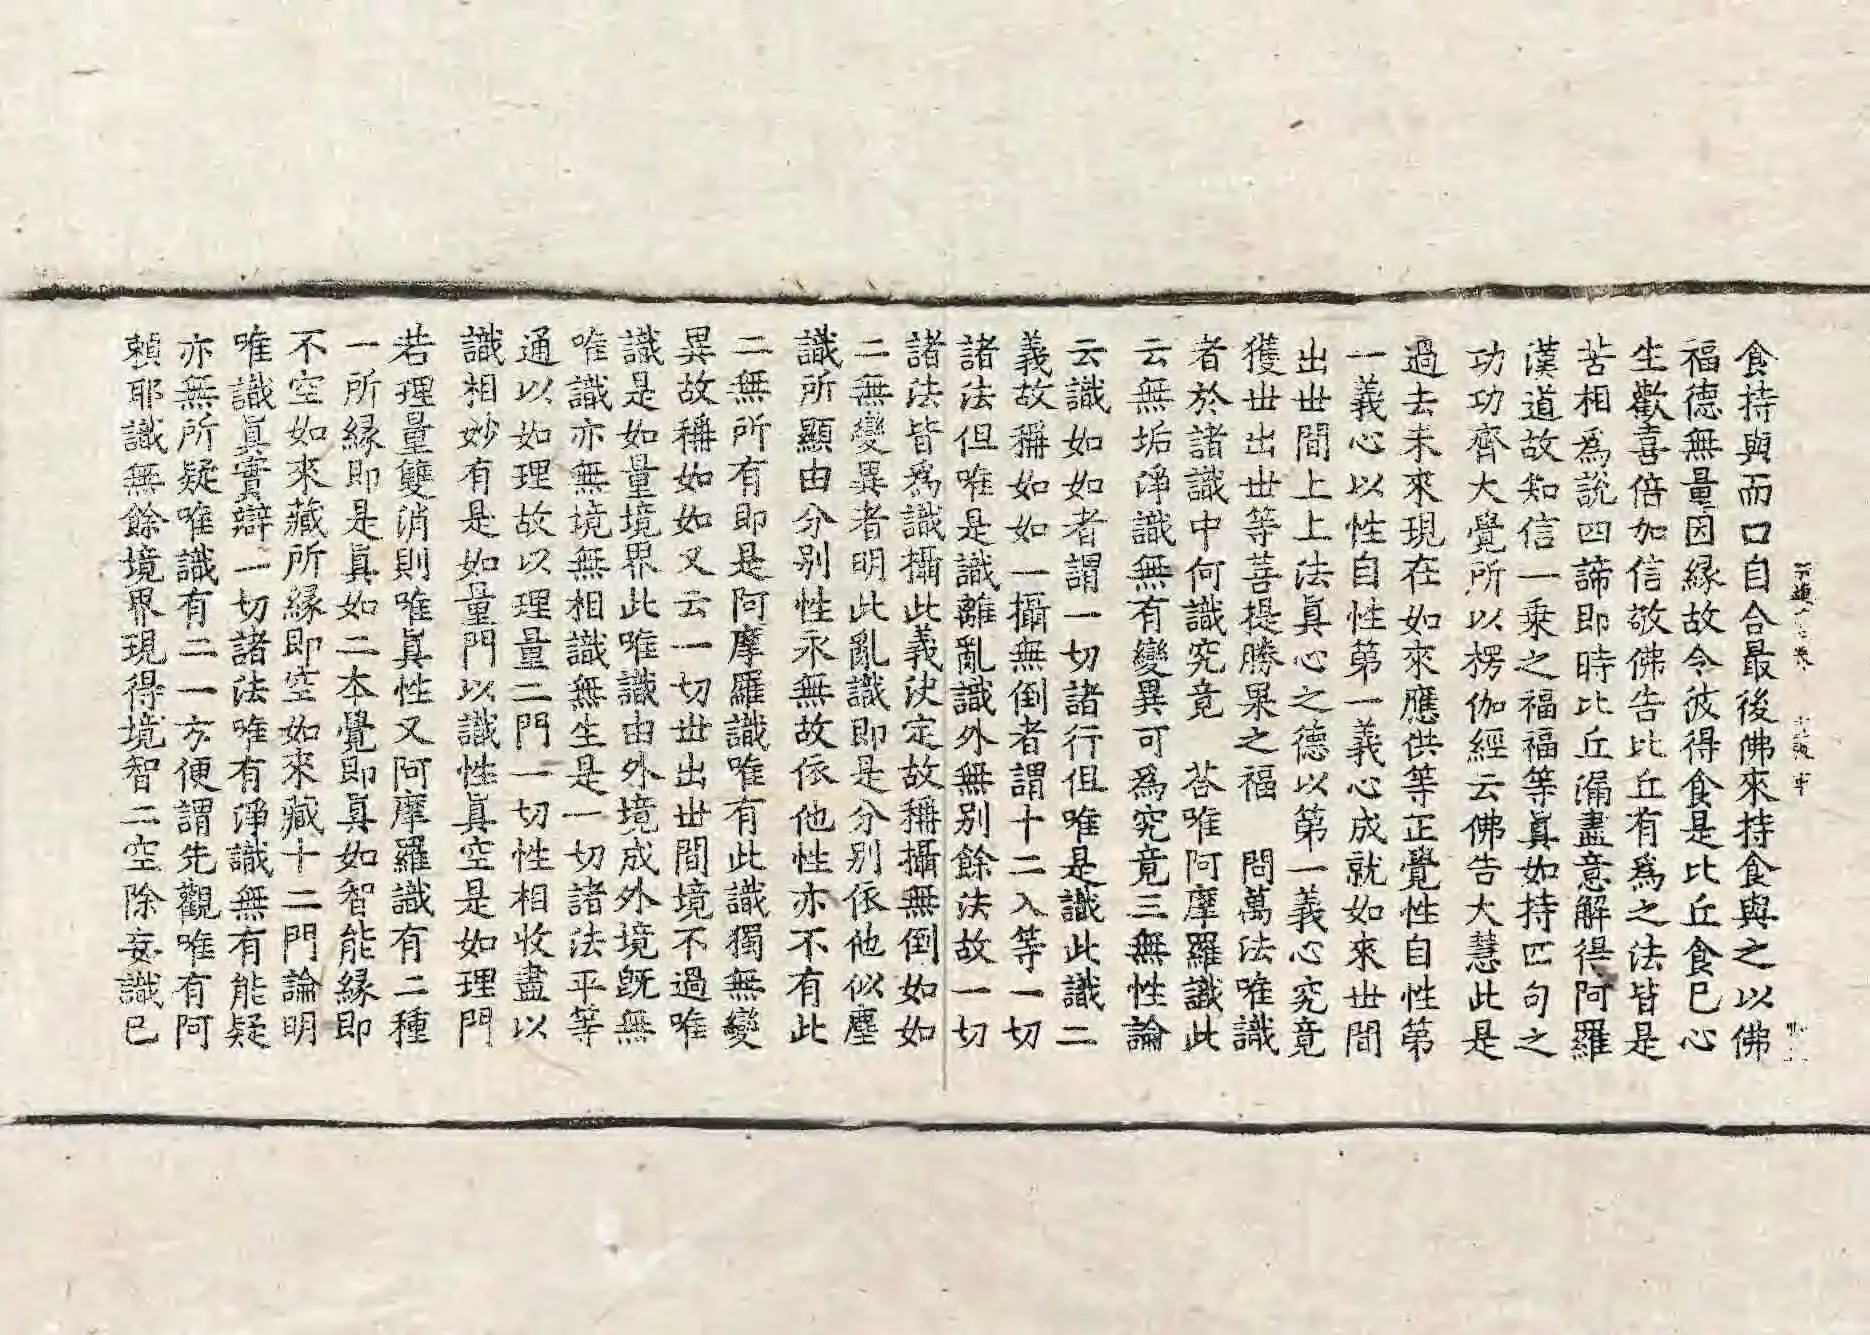 食持與而口自合最後佛來持食與之以佛
福德無量因緣故令彼得食是比丘食已心
生歡喜倍加信敬佛告比丘有為之法皆是
苦相為說四諦即時比丘漏盡意解得阿羅
漢道故知信一乗之福福等眞如持四句之
功功齊大覺所以楞伽經云佛告大慧此是
過去未來現在如來應供等正覺性自性第
一義心以性自性第一義心成就如來世間
出世間上上法眞心之德以第一義心究竟
獲世出世等菩提勝果之福 問萬法唯識
者於諸識中何識究竟 荅唯阿摩羅識此
云無垢淨識無有變異可為究竟三無性論
云識如如者謂一切諸行但唯是識此識二
義故稱如如一攝無倒者謂十二入等一切
諸法但唯是識離亂識外無别餘法故一切
諸法皆為識攝此義決定故稱攝無倒如如
二無變異者明此亂識即是分别依他似塵
識所顯由分别性永無故依他性亦不有此
二無所有即是阿摩羅識唯有此識獨無變
異故稱如如又云一切世出世間境不過唯
識是如量境界此唯識由外境成外境既無
唯識亦無境無相識無生是一切諸法平等
通以如理故以理量二門一切性相收盡以
識相妙有是如量門以識性眞空是如理門
若理量雙消則唯眞性又阿摩羅識有二種
一所緣即是眞如二本覺即眞如智能緣即
不空如來藏所緣即空如來藏十二門論明
唯識眞實辯一切諸法唯有淨識無有能疑
亦無所疑唯識有二一方便謂先觀唯有阿
賴耶識無餘境界現得境智二空除妄識已